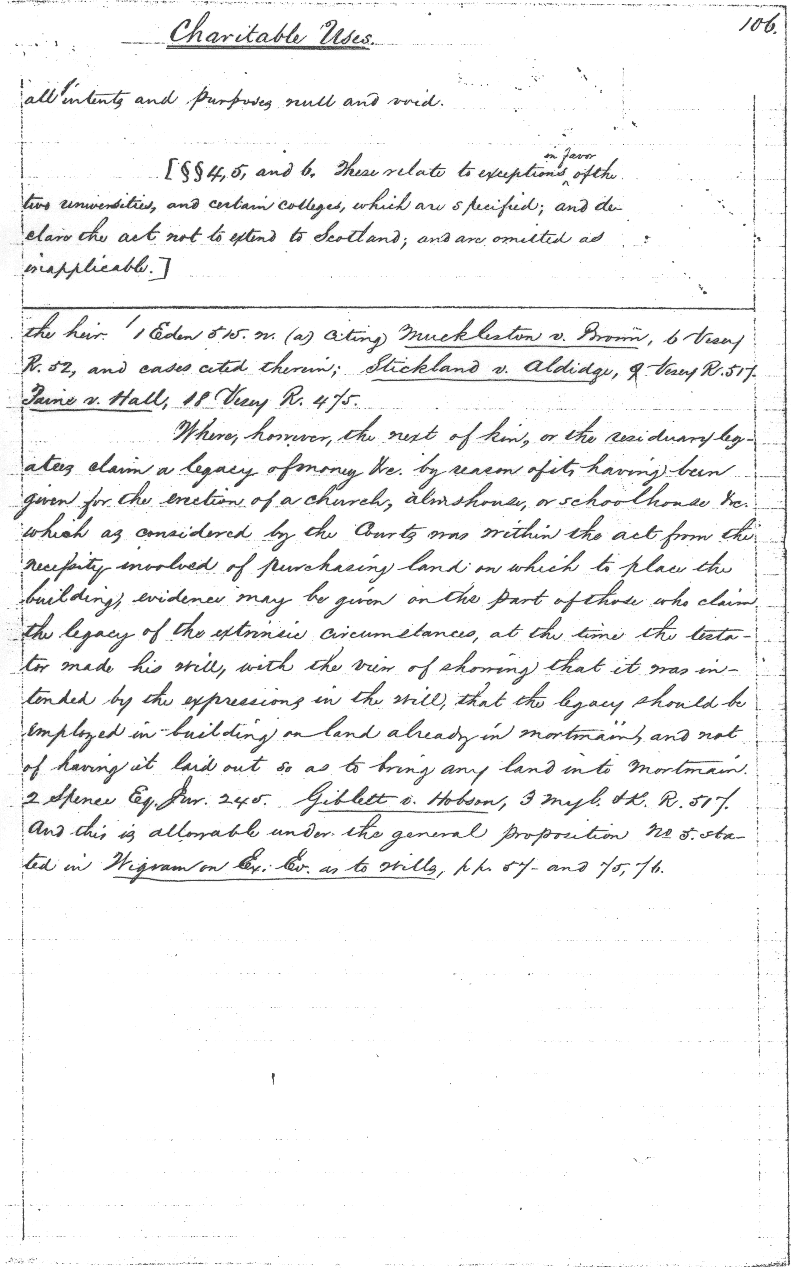 106.
Charitable Uses.
all intents and purposes null and void.
[§§4, 5, and 6. These relate to exceptions in favor of the
two universities, and certain colleges, which are specified; and de-
clare the act not to extend to Scotland; and are omitted as
inapplicable.]
the heir. 1 Eden 515. n. (a) citing Muckleston v. Brown, 6 Vesey
R. 52, and cases cited therein; Stickland v. Aldidge, 9 Vesey R. 517.
Paine v. Hall, 18 Vesey R. 475.
Where, however, the next of kin, or the residuary leg-
atees claim a legacy of money &c. by reason of its having been
given for the erection of a church, almshouse, or schoolhouse &c.
which as considered by the Courts was within the act from the
necessity involved of purchasing land on which to place the
building, evidence may be given on the part of those who claim
the legacy of the extrinsic circumstances, at the time the testa-
tor made his will, with the view of showing that it was in-
tended by the expressions in the will, that the legacy should be
employed in building on land already in mortmain, and not
of having it laid out so as to bring any land into Mortmain.
2 Spence Eq. Jur. 245. Giblett v. Hobson, 3 Myl. & K. R. 517.
And this is allowable under the general proposition No 5. sta-
ted in Wigram on Ex. Ev. as to wills, pp. 57- and 75, 76.